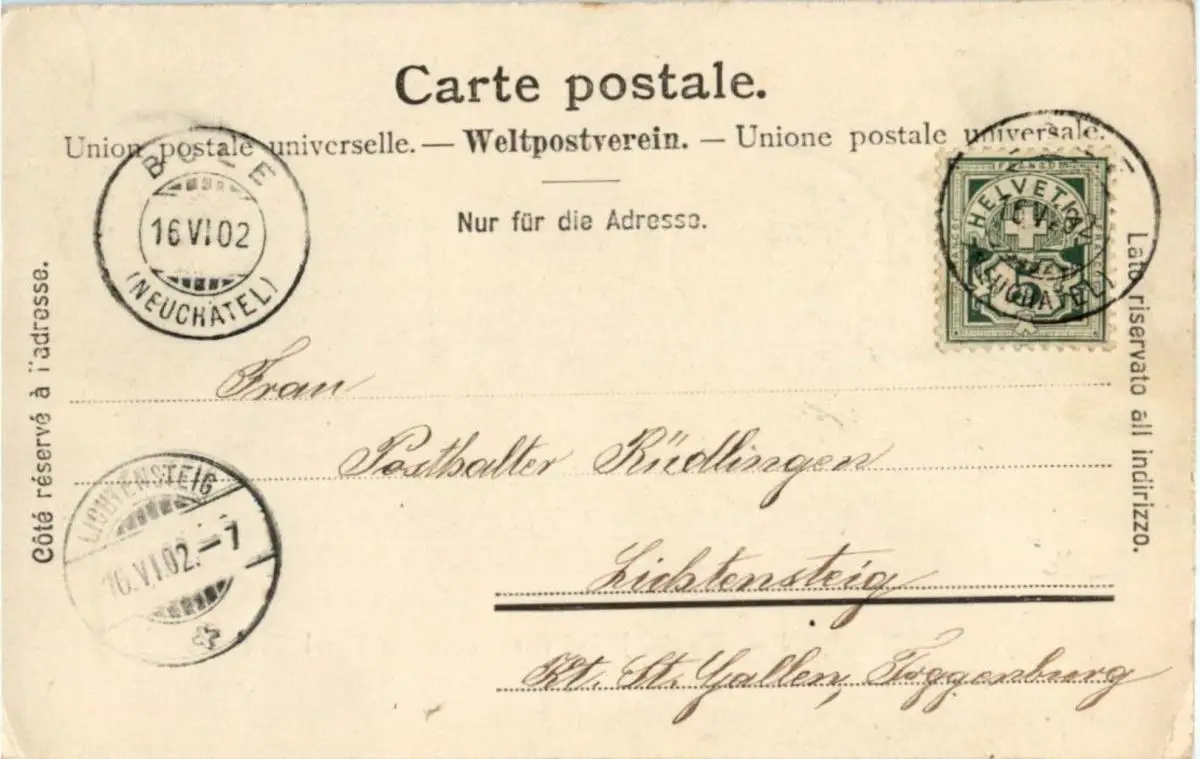 Carte postale.
Union postale universelle. — Weltpostverein. — Unione postale universale.
Nur für die Adresse.
(NEUCHÂTEL)
16 VI 02
HELVETIA
Côté réservé à l'adresse.
Lato riservato all indirizzo.
Frau
Posthalter Rüdlingen
LICHTENSTEIG
16.VI.02.–7
Lichtensteig
Kt. St. Gallen, Toggenburg